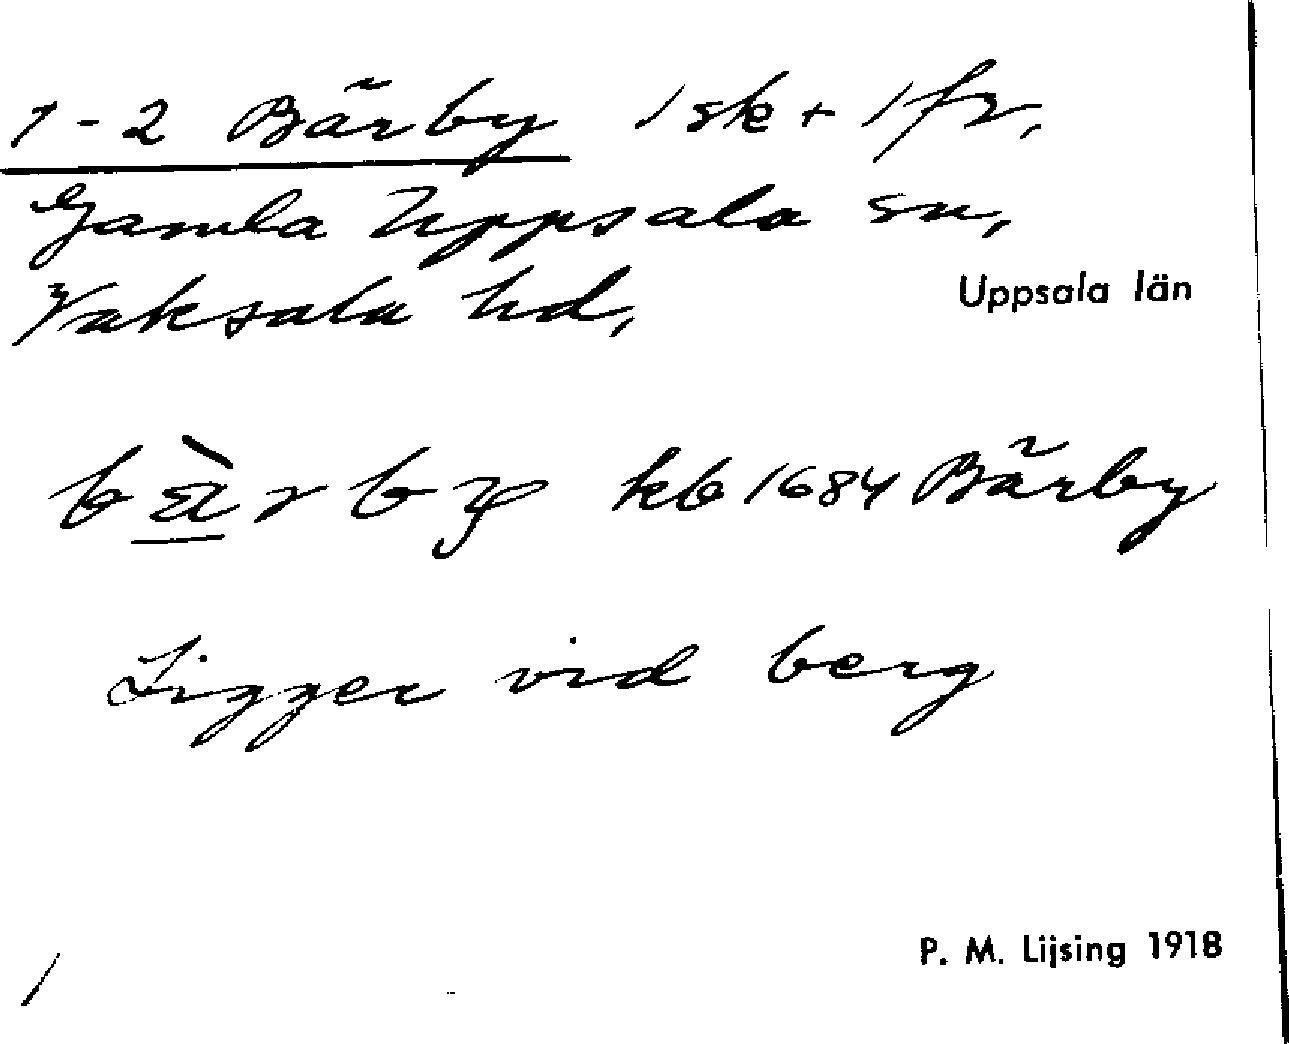 1-2 Bärby 1 sk + 1 fr,
Gamla Uppsala sn,
Vaksala hd,
Uppsala län
bæ̀rby kb 1684 Bärby
Ligger vid berg
P. M. Lijsing 1918
1